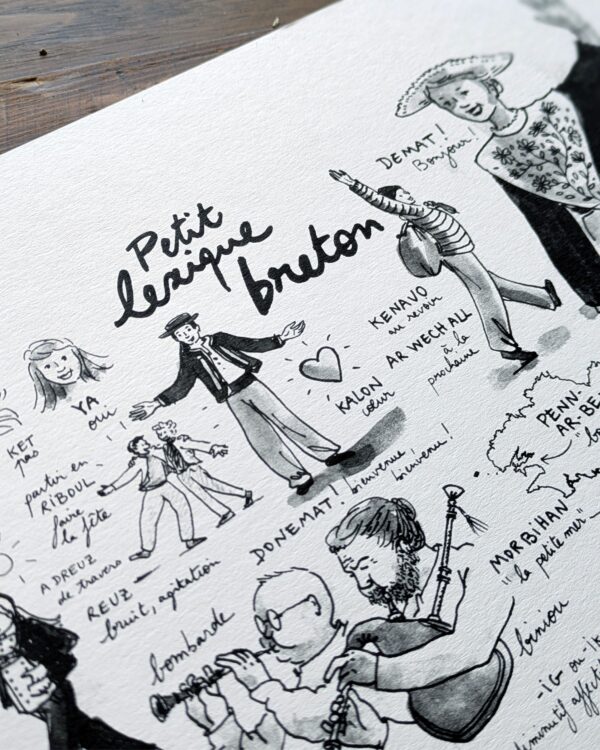 Petit
lexique
breton
DEMAT!
Bonjour!
KENAVO
au revoir
AR WECH ALL
à la
prochaine
KALON
cœur
YA
oui
KET
pas
partir en
RIBOUL
faire
la fête
A DREUZ
de travers
REUZ
bruit, agitation
DONEMAT!
bienvenue
bienvenue!
PENN-
AR-BE
MORBIHAN
"la petite mer"
bombarde
biniou
-IG ou -IK
diminutif affect